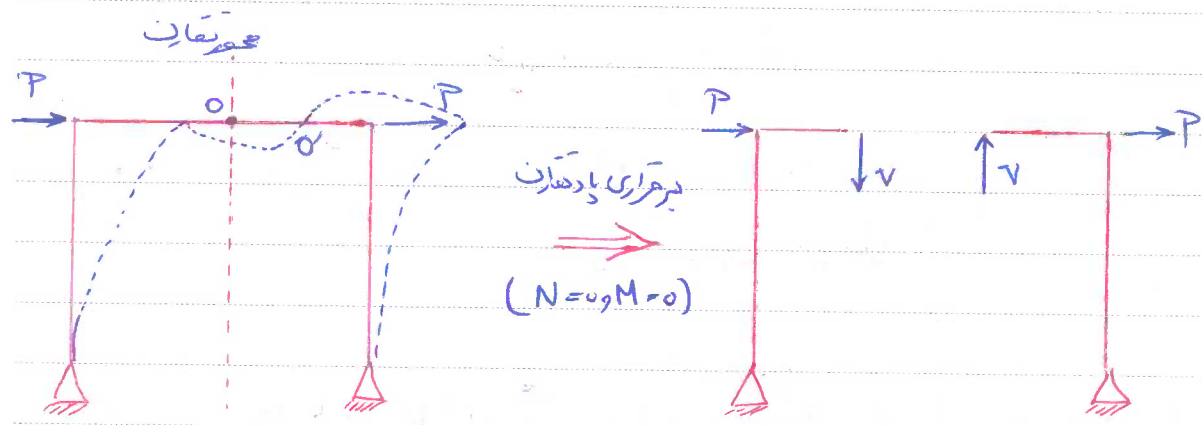 محور تقارن
P
O
P
O'
برقراری پادتقارن
(N=0 و M=0)
P
V
V
P